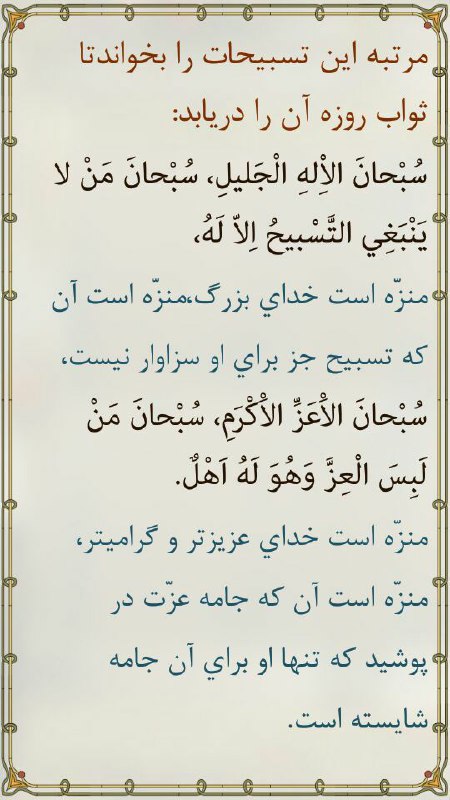 مرتبه این تسبیحات را بخواندتا
ثواب روزه آن را دریابد:
سُبْحانَ الاِْلهِ الْجَليلِ، سُبْحانَ مَنْ لا
يَنْبَغِي التَّسْبيحُ اِلاّ لَهُ،
منزّه است خداي بزرگ،منزّه است آن
که تسبيح جز براي او سزاوار نيست،
سُبْحانَ الاَْعَزِّ الاَْكْرَمِ، سُبْحانَ مَنْ
لَبِسَ الْعِزَّ وَهُوَ لَهُ اَهْلٌ.
منزّه است خداي عزيزتر و گراميتر،
منزّه است آن که جامه عزّت در
پوشيد که تنها او براي آن جامه
شايسته است.